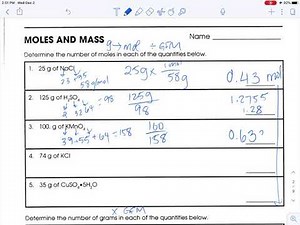 2:31 PM Wed Dec 2
50%
MOLES AND MASS
g → mol ÷ GFM
Name
Determine the number of moles in each of the quantities below.
1. 25 g of NaCl
23 + 35
58 g/mol
25g x 1 mol
58g
0.43 mol
2. 125 g of H₂SO₄
2 32 64 = 98
125g
98
1.2755
1.28
3. 100. g of KMnO₄
39 + 55 + 64 = 158
100
158
0.63
4. 74 g of KCl
5. 35 g of CuSO₄•5H₂O
x GFM
Determine the number of grams in each of the quantities below.